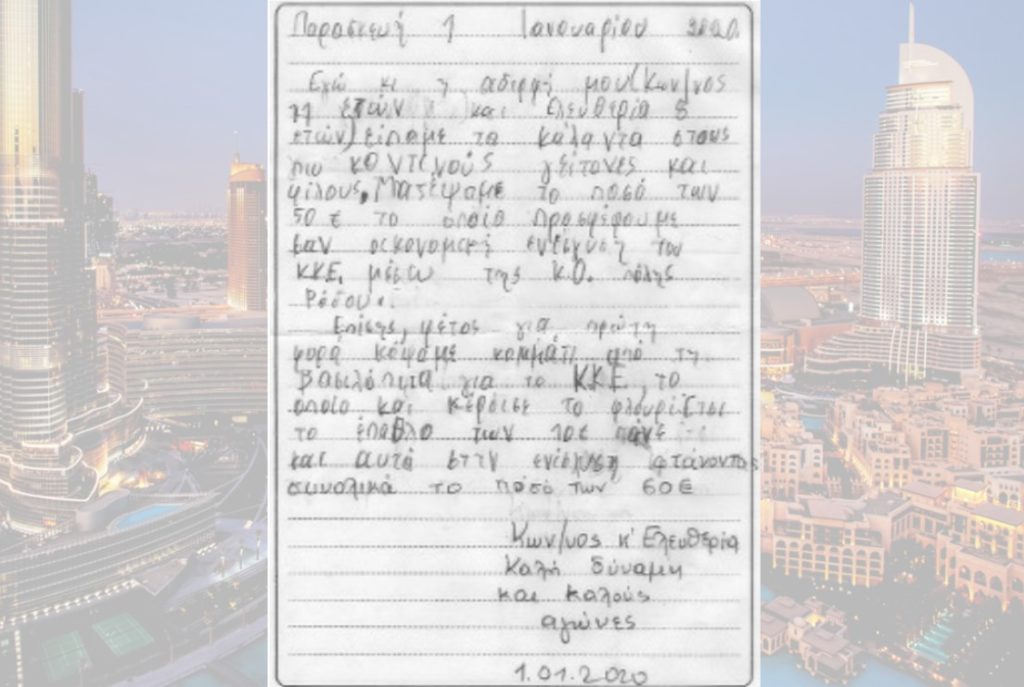 Παρασκευή 1 Ιανουαρίου
Εγώ κι η αδερφή μου(Κων/νος
11 ετών και Ελευθερία 8
ετών) είπαμε τα κάλαντα στους
πιο κοντινούς γείτονες και
φίλους. Μαζέψαμε το ποσό των
50€ το οποίο προσφέρουμε
σαν οικονομική ενίσχυση του
ΚΚΕ. μέσω της Κ.Ο. πόλης
Ρόδου.
Επίσης, φέτος για πρώτη
φορά κόψαμε κομμάτι από τη
βασιλόπιτα για το ΚΚΕ, το
οποίο και κέρδισε το φλουρί. Έτσι
το έπαθλο των 10€ πάνε
και αυτά στην ενίσχυση φτάνοντας
συνολικά το ποσό των 60€
Κων/νος κ' Ελευθερία
Καλή δύναμη
και καλούς
αγώνες
1.01.2020